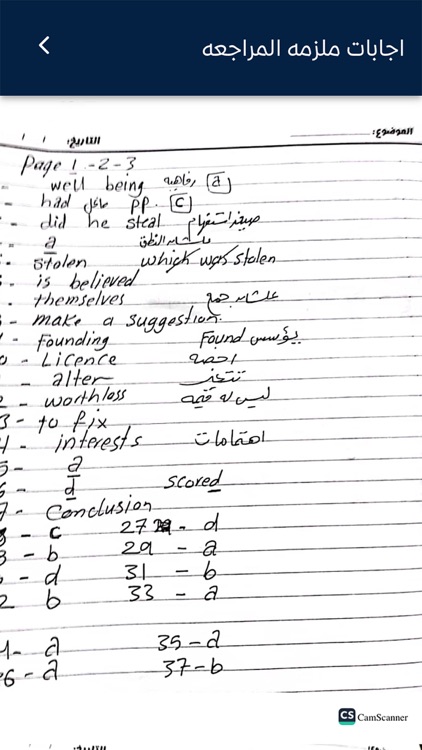 اجابات ملزمه المراجعه
الموضوع:
التاريخ: / /
Page 1-2-3
well being رفاهية a
had pp. c
did he steal صيغة استفهام
a
stolen which was stolen
is believed
themselves علشان جمع
make a suggestion
Founding Found يؤسس
Licence رخصه
alter
worthless ليس له قيمه
3 - to fix
interests اهتمامات
a
d scored
Conclusion
- c 27 - d
- b 29 - a
- d 31 - b
2 b 33 - a
- a 35 - a
6 - a 37 - b
CS CamScanner